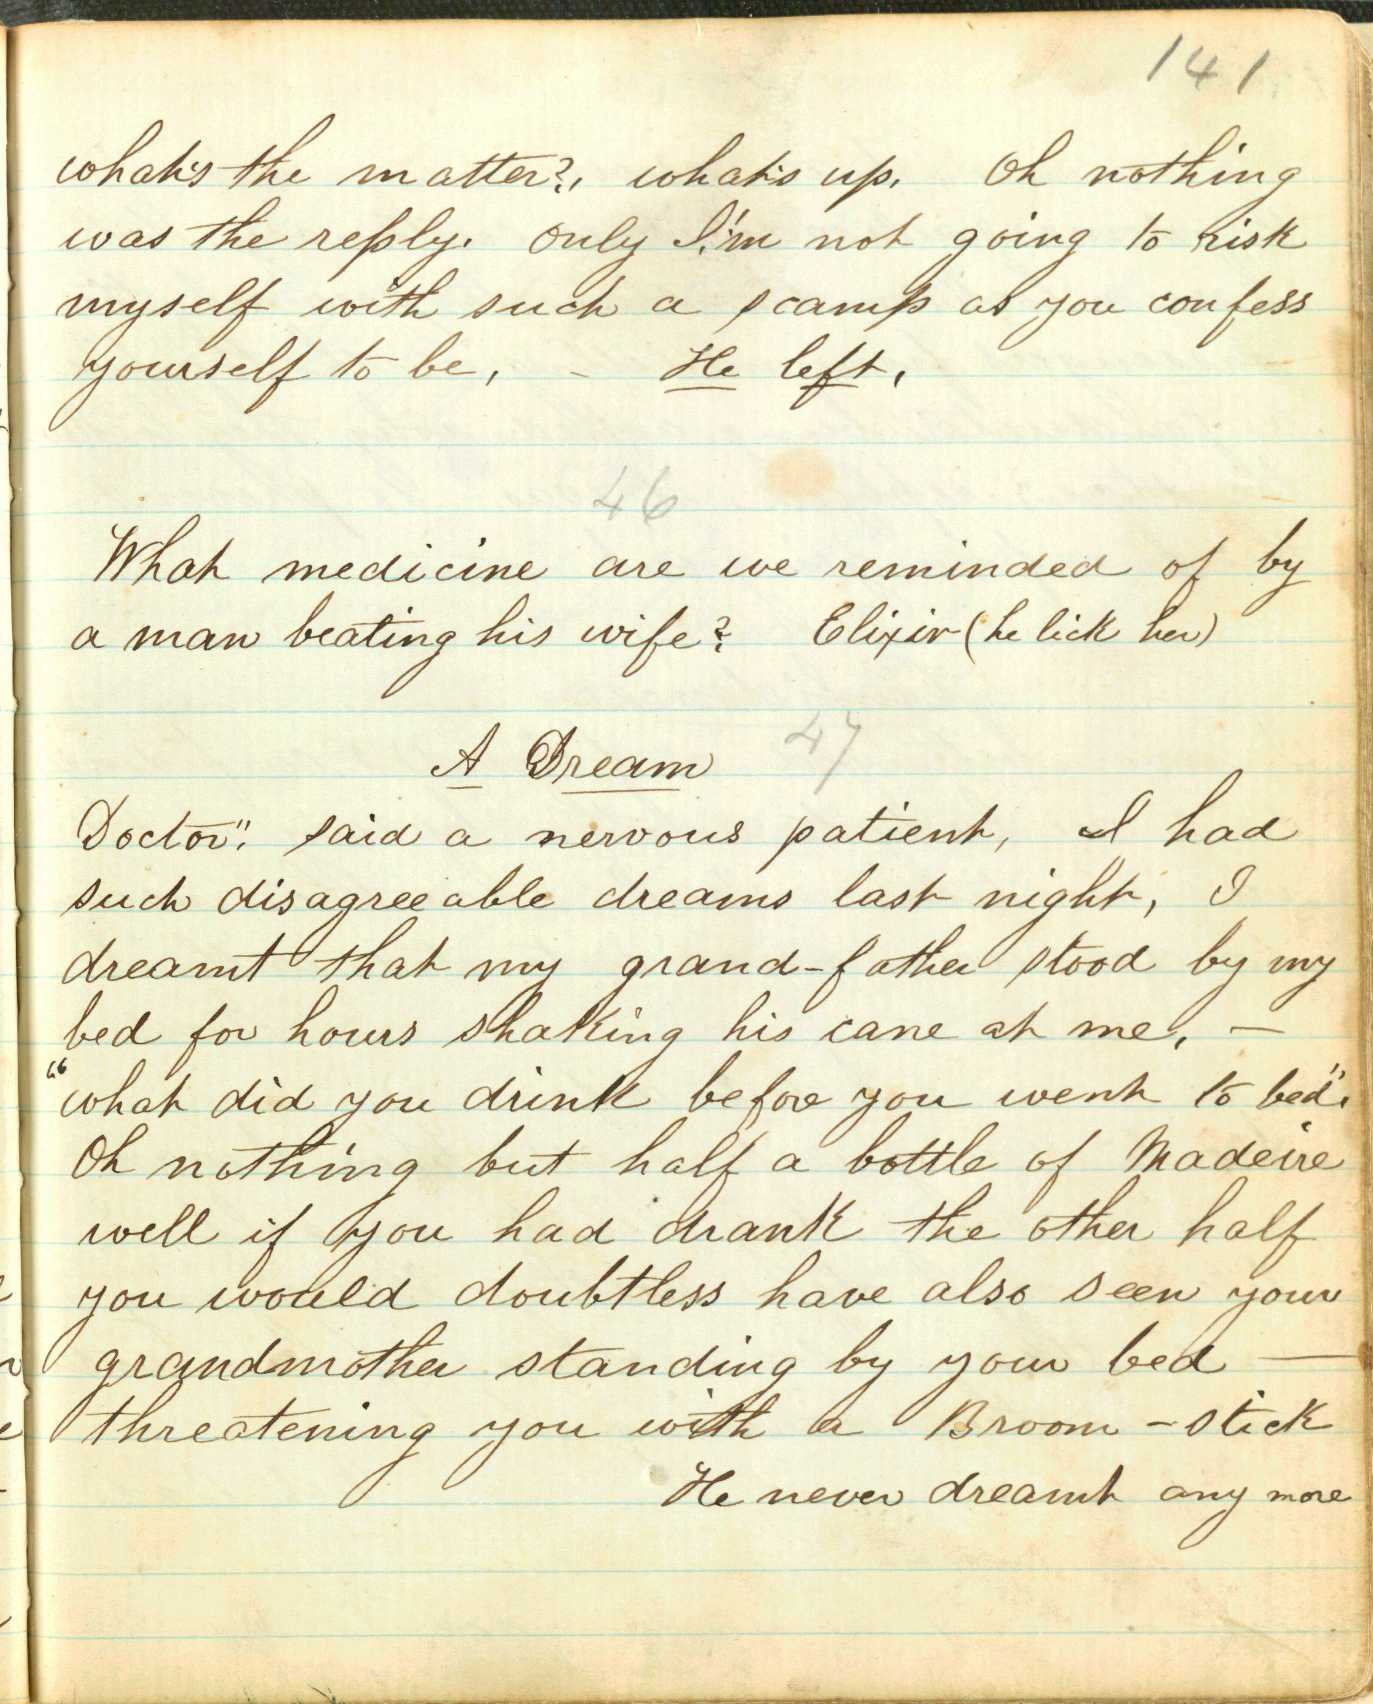 141
what's the matter?, what's up. Oh nothing
was the reply. Only I'm not going to risk
myself with such a scamp as you confess
yourself to be, - He left.
46
What medicine are we reminded of by
a man beating his wife? Elixir (he lick her)
A Dream 47
Doctor". said a nervous patient, I had
such disagreeable dreams last night, I
dreamt that my grand-father stood by my
bed for hours shaking his cane at me, —
"what did you drink before you went to bed".
Oh nothing but half a bottle of Madeire
well if you had drank the other half
you would doubtless have also seen your
grandmother standing by your bed —
threatening you with a Broom-stick
He never dreamt any more